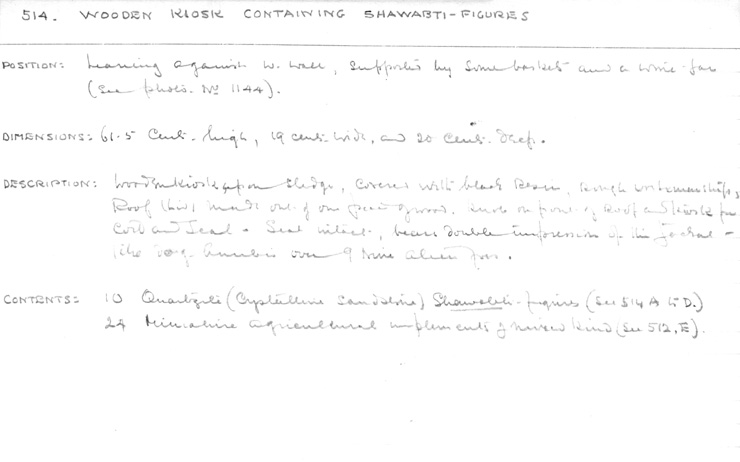 514. WOODEN KIOSK CONTAINING SHAWABTI-FIGURES
POSITION: Leaning against W. wall, supported by some baskets and a wine-jar
(See photo. No 1144).
DIMENSIONS: 61.5 Cent. high, 19 cent. wide, and 20 Cent. deep.
DESCRIPTION: Wooden kiosk upon sledge, covered with black Resin, rough workmanship,
Roof (this) made out of one piece of wood. Knob on front of Roof and kiosk for
Cord and Seal. Seal intact, bears double impression of the jackal-
like dog Anubis over 9 Nine alien foes.
CONTENTS: 10 Quartzite (Crystalline Sandstone) Shawabti-figures (See 514 A to D.)
24 Miniature agricultural implements of mixed kind (See 512, E).